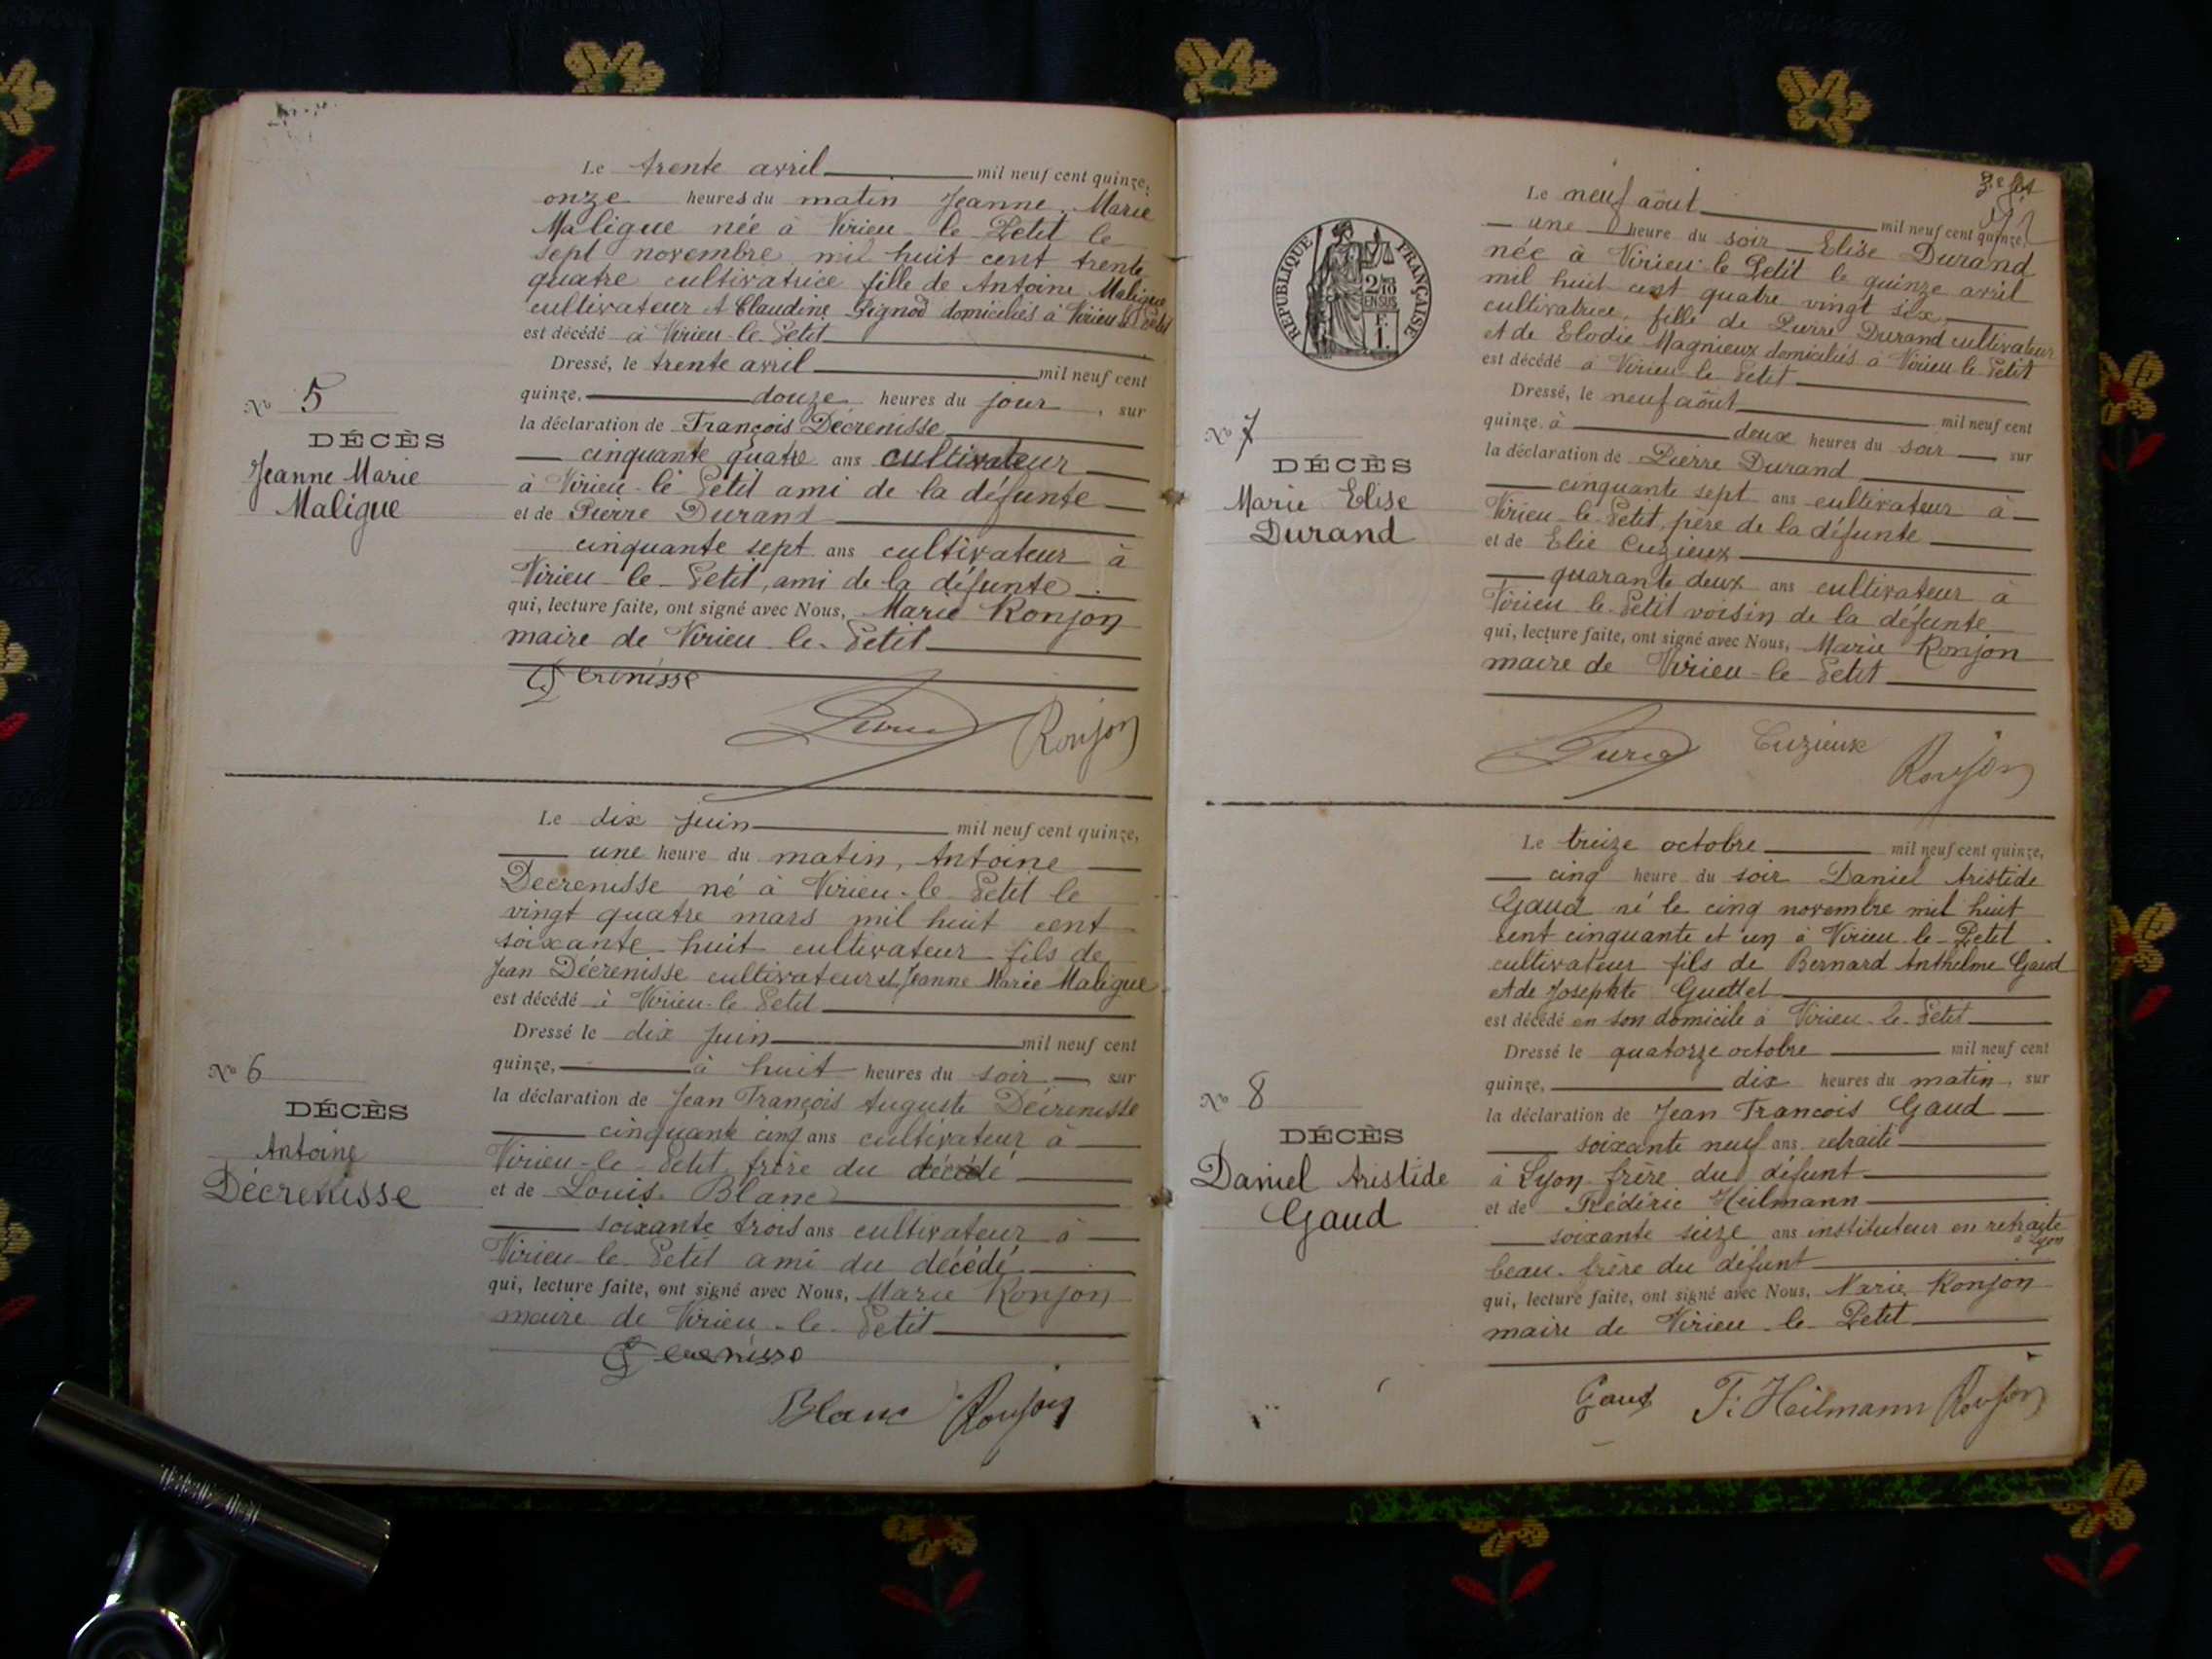 Le trente avril mil neuf cent quinze,
onze heures du matin Jeanne Marie
Maligue née à Virieu-le-Petit le
sept novembre mil huit cent trente
quatre cultivatrice fille de Antoine Maligue
cultivateur et Claudine Pignod domiciliés à Virieu le Petit
est décédé à Virieu-le-Petit
Dressé, le trente avril mil neuf cent
quinze, douze heures du jour, sur
la déclaration de François Décrenisse
cinquante quatre ans cultivateur
à Virieu-le-Petit ami de la défunte
et de Pierre Durand
cinquante sept ans cultivateur à
Virieu-le-Petit, ami de la défunte
qui, lecture faite, ont signé avec Nous, Marie Ronjon
maire de Virieu-le-Petit
No 5
DÉCÈS
Jeanne Marie
Maligue
Ronjon
Le dix juin mil neuf cent quinze,
une heure du matin, Antoine
Decrenisse né à Virieu-le-Petit le
vingt quatre mars mil huit cent
soixante huit cultivateur fils de
Jean Décrenisse cultivateur et Jeanne Marie Maligue
est décédé à Virieu-le-Petit
Dressé le dix juin mil neuf cent
quinze, à huit heures du soir, sur
la déclaration de Jean François Auguste Décrenisse
cinquante cinq ans cultivateur à
Virieu-le-Petit, frère du décédé
et de Louis Blanc
soixante trois ans cultivateur à
Virieu le Petit ami du décédé
qui, lecture faite, ont signé avec Nous, Marie Ronjon
maire de Virieu-le-Petit
No 6
DÉCÈS
Antoine
Décrenisse
Blanc Ronjon
RÉPUBLIQUE FRANÇAISE
2/10
EN SUS
F.
1.
Le neuf août mil neuf cent quinze,
une heure du soir Elise Durand
née à Virieu-le-Petit le quinze avril
mil huit cent quatre vingt six
cultivatrice, fille de Pierre Durand cultivateur
et de Elodie Magnieux domiciliés à Virieu le Petit
est décédé à Virieu-le-Petit
Dressé, le neuf août mil neuf cent
quinze, à deux heures du soir sur
la déclaration de Pierre Durand
cinquante sept ans cultivateur à
Virieu-le-Petit, père de la défunte
et de Elie Cuzieux
quarante deux ans cultivateur à
Virieu le-Petit voisin de la défunte
qui, lecture faite, ont signé avec Nous, Marie Ronjon
maire de Virieu-le-Petit
No 7
DÉCÈS
Marie Elise
Durand
Cuzieux Ronjon
Le treize octobre mil neuf cent quinze,
cinq heure du soir Daniel Aristide
Gaud né le cinq novembre mil huit
cent cinquante et un à Virieu-le-Petit
cultivateur fils de Bernard Anthelme Gaud
et de Josephte Guettet
est décédé en son domicile à Virieu-le-Petit
Dressé le quatorze octobre mil neuf cent
quinze, dix heures du matin, sur
la déclaration de Jean Francois Gaud
soixante neuf ans retraité
à Lyon frère du défunt
et de Frédéric Heilmann
soixante seize ans instituteur en retraite
à Lyon
beau-frère du défunt
qui, lecture faite, ont signé avec Nous, Marie Ronjon
maire de Virieu-le-Petit
No 8
DÉCÈS
Daniel Aristide
Gaud
Gaud F. Heilmann Ronjon